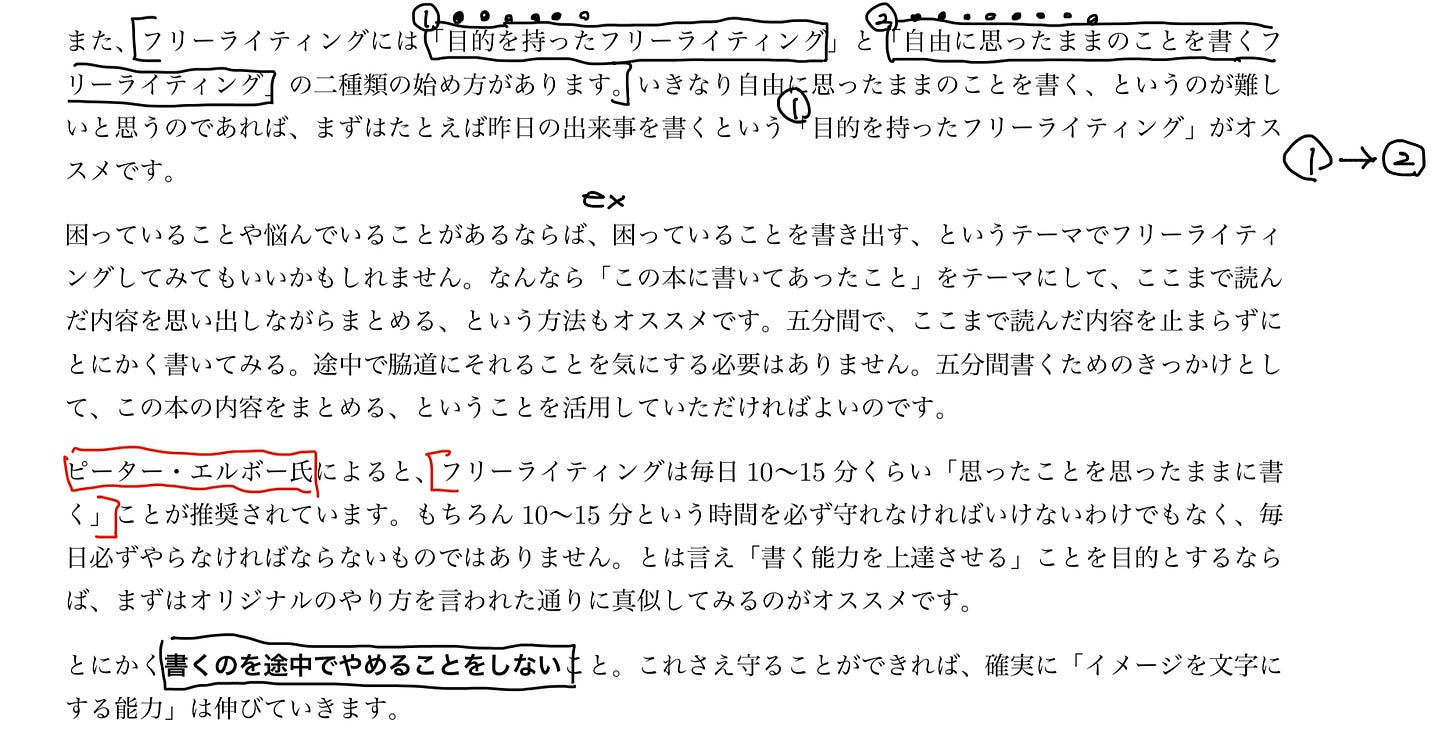 ① ②
また、フリーライティングには「目的を持ったフリーライティング」と「自由に思ったままのことを書くフ
リーライティング」の二種類の始め方があります。いきなり自由に思ったままのことを書く、というのが難し
①
いと思うのであれば、まずはたとえば昨日の出来事を書くという「目的を持ったフリーライティング」がオス
①→②
スメです。
ex
困っていることや悩んでいることがあるならば、困っていることを書き出す、というテーマでフリーライティ
ングしてみてもいいかもしれません。なんなら「この本に書いてあったこと」をテーマにして、ここまで読ん
だ内容を思い出しながらまとめる、という方法もオススメです。五分間で、ここまで読んだ内容を止まらずに
とにかく書いてみる。途中で脇道にそれることを気にする必要はありません。五分間書くためのきっかけとし
て、この本の内容をまとめる、ということを活用していただければよいのです。
ピーター・エルボー氏によると、フリーライティングは毎日 10〜15 分くらい「思ったことを思ったままに書
く」ことが推奨されています。もちろん 10〜15 分という時間を必ず守れなければいけないわけでもなく、毎
日必ずやらなければならないものではありません。とは言え「書く能力を上達させる」ことを目的とするなら
ば、まずはオリジナルのやり方を言われた通りに真似してみるのがオススメです。
とにかく書くのを途中でやめることをしないこと。これさえ守ることができれば、確実に「イメージを文字に
する能力」は伸びていきます。